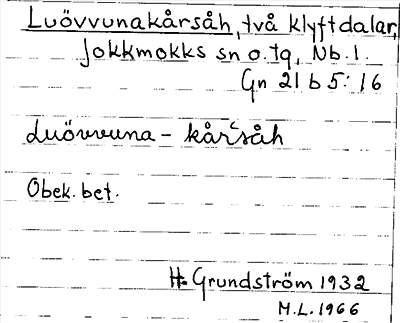 Luövvunakårsåh, två klyftdalar,
Jokkmokks sn o. tg, Nb. l.
Gn 21 b 5: 16
Luövvuna - kårʻsåh
Obek. bet.
H. Grundström 1932
M.L. 1966